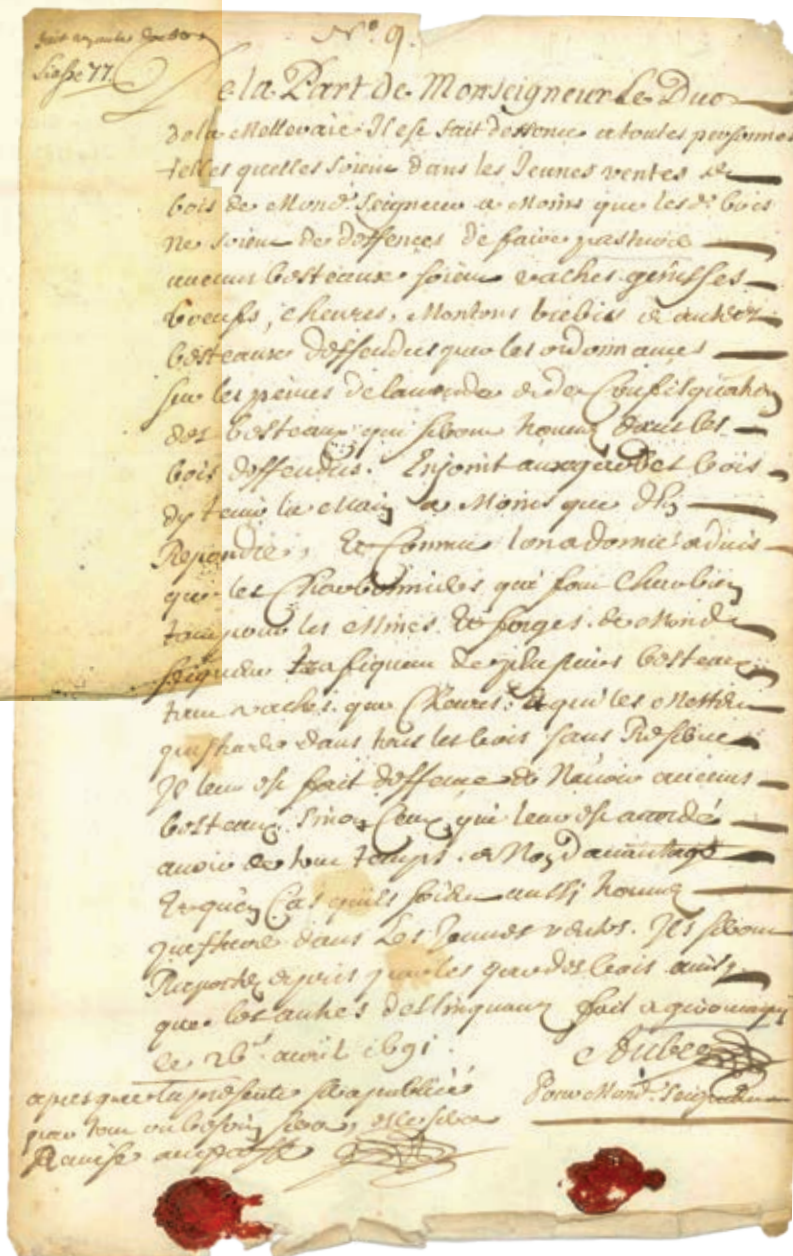 No. 9.
Liasse 77.
De la Part de Monseigneur Le Duc
de la Melleraie Il est fait deffence a toutes personnes
telles quelles soient dans les Jeunes ventes de
bois de Mond. Seigneur a Moins que lesd. bois
ne soient de deffences de faire pasturé
aucuns besteaux soient vaches genisses
boeufs, chevres, Moutons brebis et autres
besteaux deffendus par les ordonnances
sur les peines de lamende et de Confisquation
des besteaux qui seront trouvez dans les
bois deffendus. Enjoint aux gardes bois
dy tenir la Main a Moins que den
Repondre, Et Comme lon a donné advis
que les Charbonniers qui font Charbon
tant pour les Mines Et forges de Mond.
seigneur trafiquent de plusieurs besteaux
tant vaches que Chevres, Et qui les Mettent
pasturer dans tous les bois sans Reserve
Il leur est fait deffence de Navoir aucuns
besteaux sinon Ceux qui leur est acordé
avoir de tout temps et Non Davantage
Et quen Cas quils soient aussi trouvez
pasturé dans Les Jeunes ventes. Ils seront
Raportez et pris par les gardes bois ainsy
que les autres delinquans fait a
le 26 avril 1691
Pour Mond. Seigneur
apres que la presente sera publiée
par tout ou besoin sera, elle sera